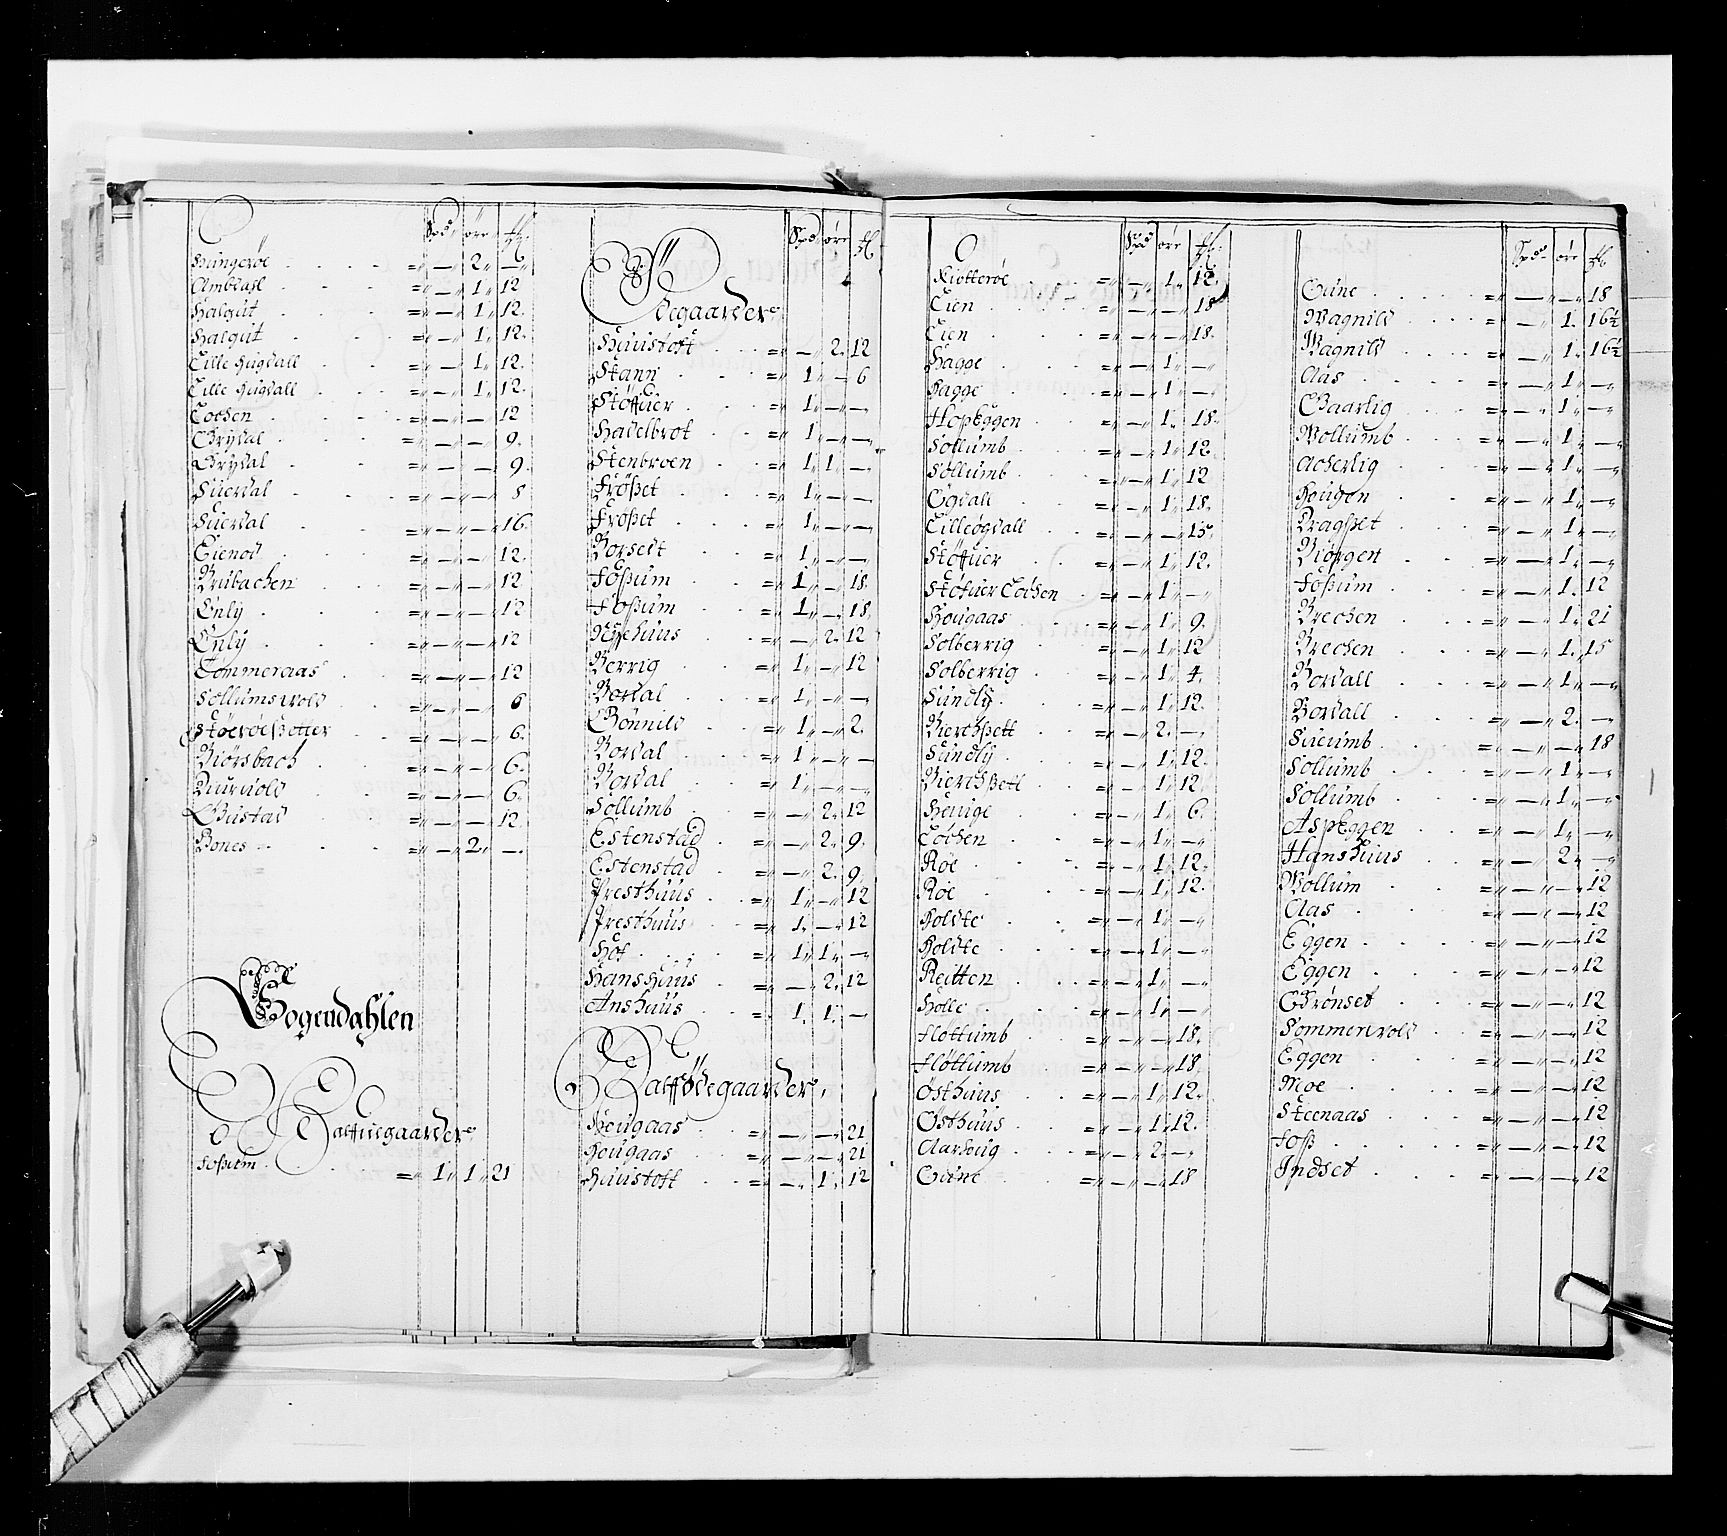 Spd øre ℔
Hungerøe = — „ 2 „ — „
Ambdahl = — „ 1 „ 12
Halgut = — „ 1 „ 12.
Halgut = — „ 1 „ 12.
Lille Hugdall = — „ 1 „ 12.
Lille Hugdall = — „ 1 „ 12.
Lochen = — „ — „ 12
Grydal = — „ — „ 9.
Grydal = — „ — „ 9.
Suerdal = — „ — „ 8
Suerdal = — „ — „ 16.
Eienod = — „ — „ 12.
Brubachen = — „ — „ 12
Enly = — „ — „ 12
Enly = — „ — „ 12
Tommeraas = — „ — „ 12
Sollumsvold = — „ — „ 6
Støerøeßetter = — „ — „ 6.
Biørsbach = — „ — „ 6.
Buruold = — „ — „ 6.
Gustad = — „ — „ 12.
Bones = — „ 2 „ — „
Sogendahlen
Halffuegaarder
Foßum = „ 1 „ 1 „ 21
Spd øre ℔
Ødegaarder
Huustoft = — „ 2. 12
Stann = 1 „ — 6
Støffuer = 1 „ — —
Hadelbrot = 1 „ — —
Stenbroen = 1 „ 1 „ —
Frøßet = 1 „ — —
Frøßet = 1 „ — —
Borsedt = 1 „ — —
Foßum = 1 „ — 18
Foßum = 1 „ — 18.
Nyehuus = — 2. 12
Berrig = 1 „ — 12
Bordal = 1 „ — —
Bønnild = 1 „ — 2.
Bordal = 1 „ — —
Bordal = 1 „ — —
Sollumb = — „ 2. 12
Estenstad = — „ 2. 9.
Estenstad = — „ 2. 9.
Presthuus = 1 „ — 12
Presthuus = 1. — 12
Hof = 1 „ 1 „ —
Hanshuus = — „ 2. 12
Anshuus = 1. 1. —
Halffødegaarder
Hougaas = — „ — „ 21
Hougaas = — „ — „ 21
Huustoft = — „ 1 „ 12
Spd øre ℔
Kiotterøe = — „ 1 „ 12.
Lien = — „ — „ 18
Lien = — „ — „ 18.
Hagge = — „ 1 „ — „
Hagge = — „ 1 „ — „
Hopeggen = — „ 1. 18.
Sollumb = — „ 1 „ 12.
Sollumb = — „ 1 „ 12
Ogdall = — „ 1 „ 18.
Lilleøgdall = — „ — „ 15
Støffuer = — „ 1 „ 12.
Støfuer Lochen = — „ 1 „ — „
Hougaas = — „ 1 „ 9.
Solberrig = — „ 1 „ 12
Solberrig = — „ 1 „ 4.
Sundly = — „ 1 „ 12.
Bierchßett = — „ 2. — „
Sundly = — „ 1 „ 12.
Bierchßett = — „ 1 „ 12.
Houge = — „ 1 „ 6.
Lochen = — „ 1 „ — „
Roe = — „ 1 „ 12.
Roe = — „ 1 „ 12.
Holdte = — „ 1 „ — „
Holdte = — „ 1 „ — „
Reitten = — „ 1 „ — „
Holle = — „ 1 „ — „
Fløttumb = — „ — „ 18.
Fløttumb = — „ — „ 18.
Østhuus = — „ 1 „ 12.
Østhuus = — „ 1 „ 12.
Aarhoug = — „ 2. — „
Gune = — „ — „ 18
Spd øre ℔
Gune = — „ — „ 18
Wagnild = — „ 1. 16½
Wagnild = — „ 1. 16½
Aas = — „ 1 „ — „
Gaarlig = — „ 1 „ — „
Wollumb = — „ 1 „ — „
Acherlig = — „ 1 „ — „
Hougen = — „ 1 „ — „
Dragßet = — „ 1 „ — „
Biørgen = — „ 1 „ — „
Foßum = — „ 1. 12
Brechen = — „ 1 „ 21
Brechen = — „ 1. 15
Bordall = — „ 1 „ — „
Bordall = — „ 2. — „
Sucumb = — „ — „ 18
Sollumb = — „ 1 „ — „
Sollumb = — „ 1 „ — „
Aspeggen = — „ 1. — „
Hanshuus = — „ 2. — „
Wollum = — „ — „ 12
Aas = — „ — „ 12
Eggen = — „ — „ 12
Eggen = — „ — „ 12
Grønset = — „ — „ 12
Sommervold = — „ — „ 12
Eggen = — „ — „ 12
Moe = — „ — „ 12
Steenaas = — „ — „ 12
Foß = — „ — „ 12
Indset = — „ — „ 12